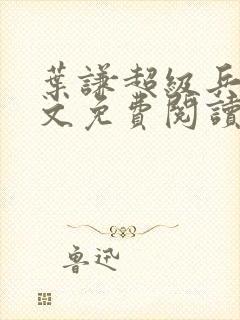 葉謙超級兵
文免費閱讀
魯迅